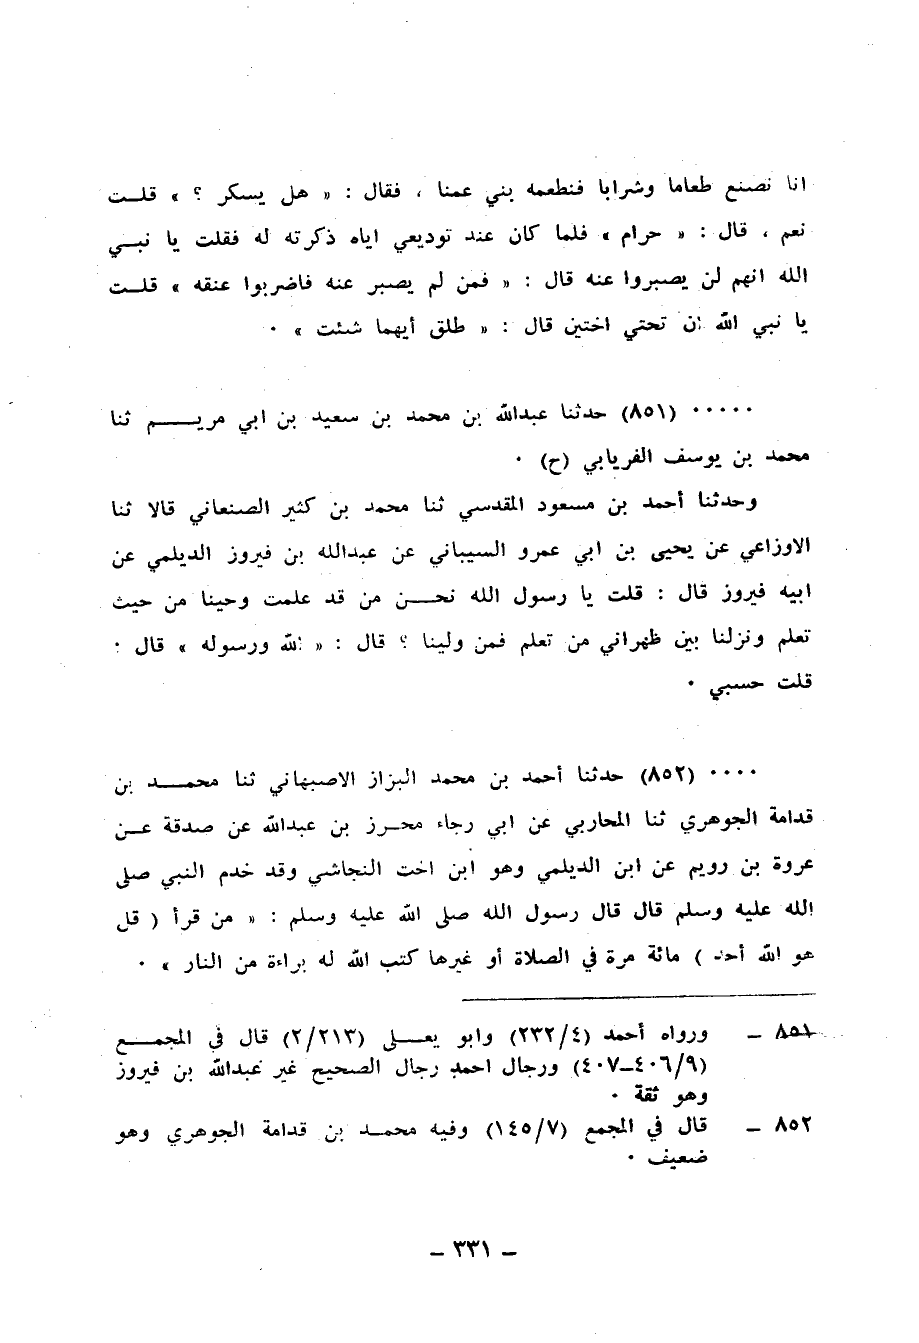 انا نصنع طعاما وشرابا فنطعمه بني عمنا ، فقال : « هل يسكر ؟ » قلــت
نعم ، قال : « حرام » فلما كان عند توديعي اياه ذكرته له فقلت يا نبــي
الله انهم لن يصبروا عنه قال : « فمن لم يصبر عنه فاضربوا عنقه » قلــت
يا نبي الله ان تحتي اختين قال : « طلق أيهما شئت » ٠
٠٠٠٠٠ (٨٥١) حدثنا عبدالله بن محمد بن سعيد بن ابي مريـــــم ثنا
محمد بن يوسف الفريابي (ح) ٠
وحدثنا أحمد بن مسعود المقدسي ثنا محمد بن كثير الصنعاني قالا ثنا
الاوزاعي عن يحيى بن ابي عمرو السيباني عن عبدالله بن فيروز الديلمي عن
ابيه فيروز قال : قلت يا رسول الله نحــــن من قد علمت وحينا من حيث
تعلم ونزلنا بين ظهراني من تعلم فمن ولينا ؟ قال : « الله ورسوله » قال :
قلت حسبي ٠
٠٠٠٠ (٨٥٢) حدثنا أحمد بن محمد البزاز الاصبهاني ثنا محمـــــد بن
قدامة الجوهري ثنا المحاربي عن ابي رجاء محـرز بن عبدالله عن صدقة عــن
عروة بن رويم عن ابن الديلمي وهو ابن اخت النجاشي وقد خدم النبي صلى
الله عليه وسلم قال قال رسول الله صلى الله عليه وسلم : « من قرأ ( قل
هو الله أحد ) مائة مرة في الصلاة أو غيرها كتب الله له براءة من النار » ٠
٨٥١ ــ ورواه أحمد (٢٣٢/٤) وابو يعــــلى (٢/٢١٣) قال في المجمـــــع
(٤٠٧ــ٤٠٦/٩) ورجال احمد رجال الصحيح غير عبدالله بن فيروز
وهو ثقة ٠
٨٥٢ ــ قال في المجمع (١٤٥/٧) وفيه محمــد بن قدامة الجوهري وهو
ضعيف ٠
ــ ٣٣١ ــ